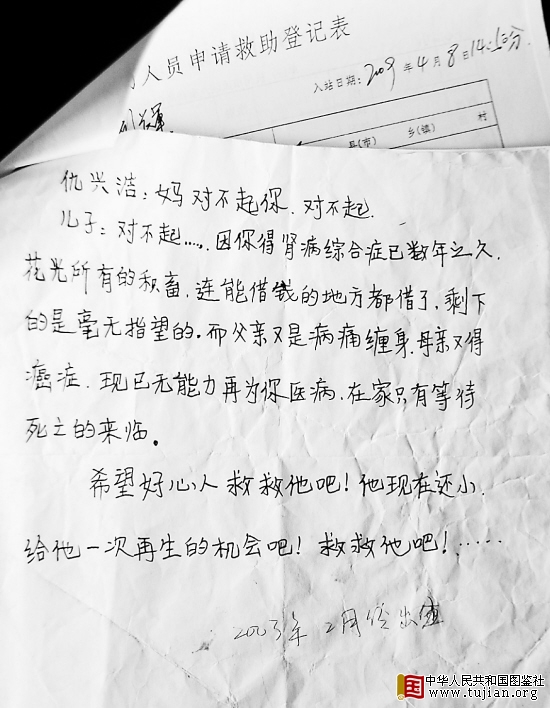 人员申请救助登记表
入站日期：2009年4月8日14:10分
县(市) 乡(镇) 村
仇兴浩：妈对不起你、对不起.
儿子：对不起..... 因你得肾病综合症已数年之久.
花光所有的积畜，连能借钱的地方都借了，剩下
的是毫无指望的.而父亲又是病痛缠身.母亲又得
癌症、现已无能力再为你医病、在家只有等待
死亡的来临。
希望好心人救救他吧！他现在还小.
给他一次再生的机会吧！救救他吧！……
2003年2月 出生
中华人民共和国图鉴社
www.tujian.org